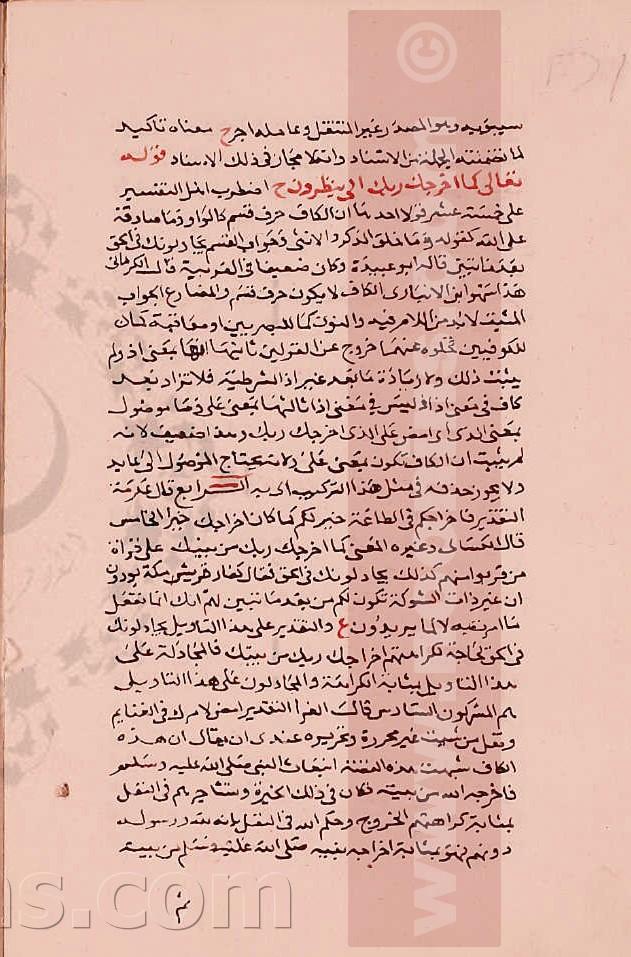 سيبويه وهو المصدر غير المنتقل وعامله اخرج معناه تاكيد
لما تضمنته الجملة من الاسناد وانتفا مجاز في ذلك الاسناد قوله
تعالى كما اخرجك ربك الى ينظرون ح اضطرب اهل التفسير
على خمسة عشر قولا احدها ان الكاف حرف قسم كالواو وما صادقة
على الله كقوله وما خلق الذكر والانثى وجواب القسم يجادلونك في الحق
بعد ما تبين قاله ابو عبيدة وكان ضعيفا في العربية قال الكرماني
هذا سهو ابن الانباري الكاف لا يكون حرف قسم والمضارع الجواب
المثبت لا بد من اللام فيه والنون كما للبصريين او معاقبة كما
للكوفيين فخلوه عنهما خروج عن القولين ثانيها انها بمعنى اذ ولم
يثبت ذلك ولا زيادة ما بعد غير اذ الشرطية فلا تزاد بعد
كاف في معنى اذ وليس في معنى اذ ثالثها بمعنى على وما موصول
بمعنى الذي اي امض على الذي اخرجك ربك وهذا ضعيف لانه
لم يثبت ان الكاف تكون بمعنى على ولانه يحتاج الموصول الى عايد
ولا يجوز حذفه في مثل هذا التركيب الرابع قال عكرمة
التقدير فاخراجكم في الطاعة خير لكم كما كان اخراجك خيرا الخامس
قال الكسائي وغيره المعنى كما اخرجك ربك من بيتك على كراهة
من فريق منهم كذلك يجادلونك في الحق فقال كفار قريش مكة يودون
ان غير ذات الشوكة تكون لكم من بعد ما تبين لهم انك انما تفعل
ما امرت به لا ما يريدون ع والتقدير على هذا التاويل يجادلونك
في الحق مجادلة لكراهتهم اخراجك ربك من بيتك فالمجادلة على
هذا التاويل بمثابة الكراهة والمجادلون على هذا التاويل
هم المشركون السادس قال الفرا التقدير امض لامرك في الغنايم
ونفل من شئت غير محررة وتحريره عندي ان يقال ان هذه
الكاف شبهت هذه القصة انبعاث النبي صلى الله عليه وسلم
فاخرجه الله من بيته فكان في ذلك الخيرة وتشاجرهم في النفل
بمثابة كراهتهم الخروج وحكم الله في النفل بانه لله ورسوله
دونهم فهو بمثابة اخراجه نبيه صلى الله عليه وسلم من بيته
ثم
www
ns.com
©